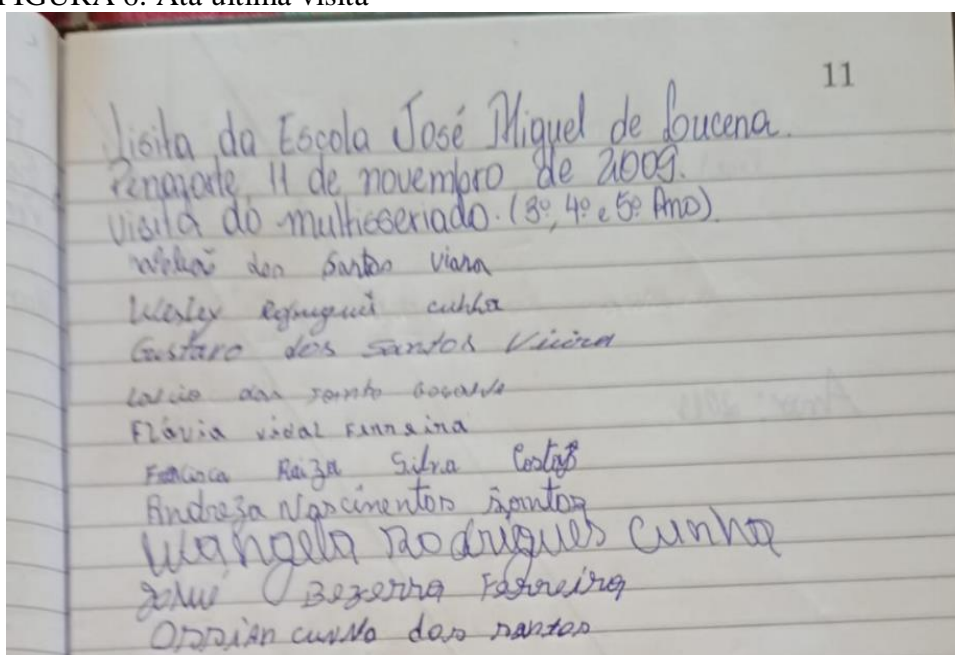 FIGURA 6: Ata última visita
11
Visita da Escola José Miguel de Lucena.
Penaforte, 11 de novembro de 2009.
Visita do multisseriado. (3º, 4º e 5º Ano).
dos Santos Viana
Wesley cunha
Gustavo dos Santos Vieira
das santo
Flávia vidal Ferreira
Francisca Raiza Silva Costa
Andreza Nascimentos Santos
Wangela Rodrigues Cunha
Josué Bezerra Ferreira
cunha dos santos